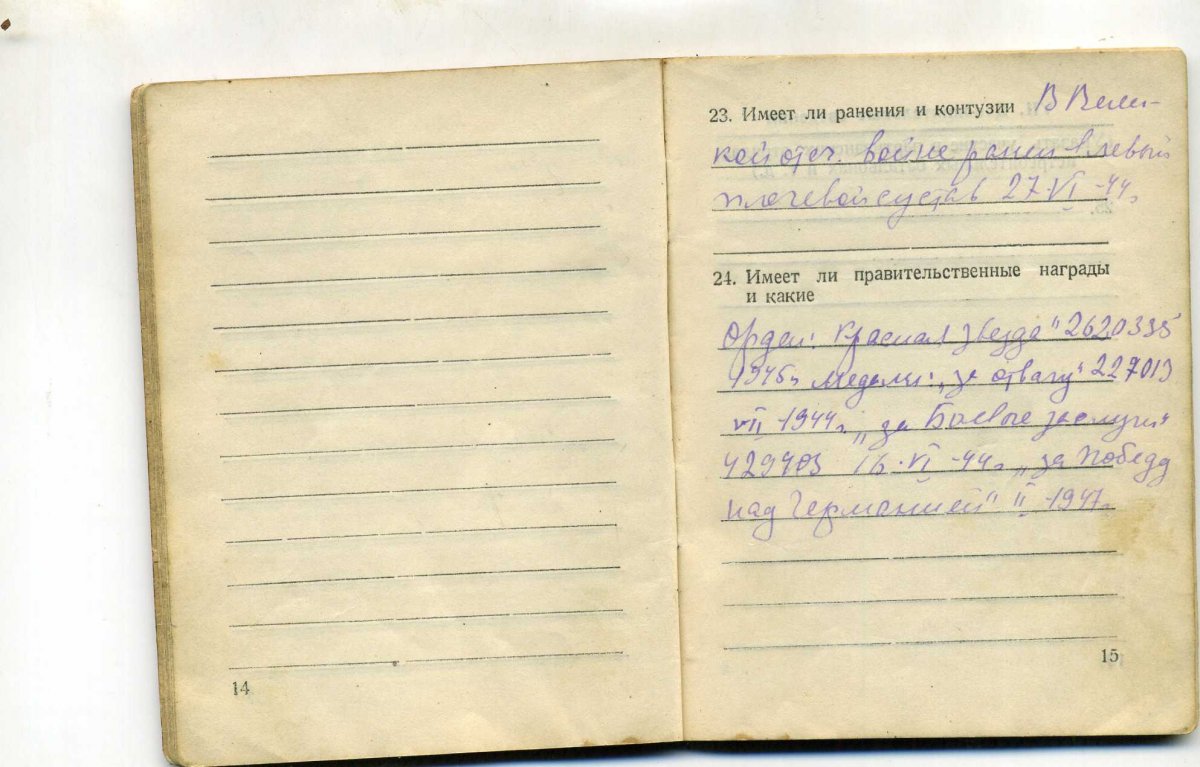 23. Имеет ли ранения и контузии В Вели-
кой отеч. войне ранен в левый
плечевой сустав 27-VI-44г.
24. Имеет ли правительственные награды
и какие
Орден: Красная звезда" 2620335
1945г. медали: „за отвагу" 227013
VII 1944г. „за Боевые заслуги"
429403 16-VI-44г. „за Победу
над Германией" II 1947г.
14
15